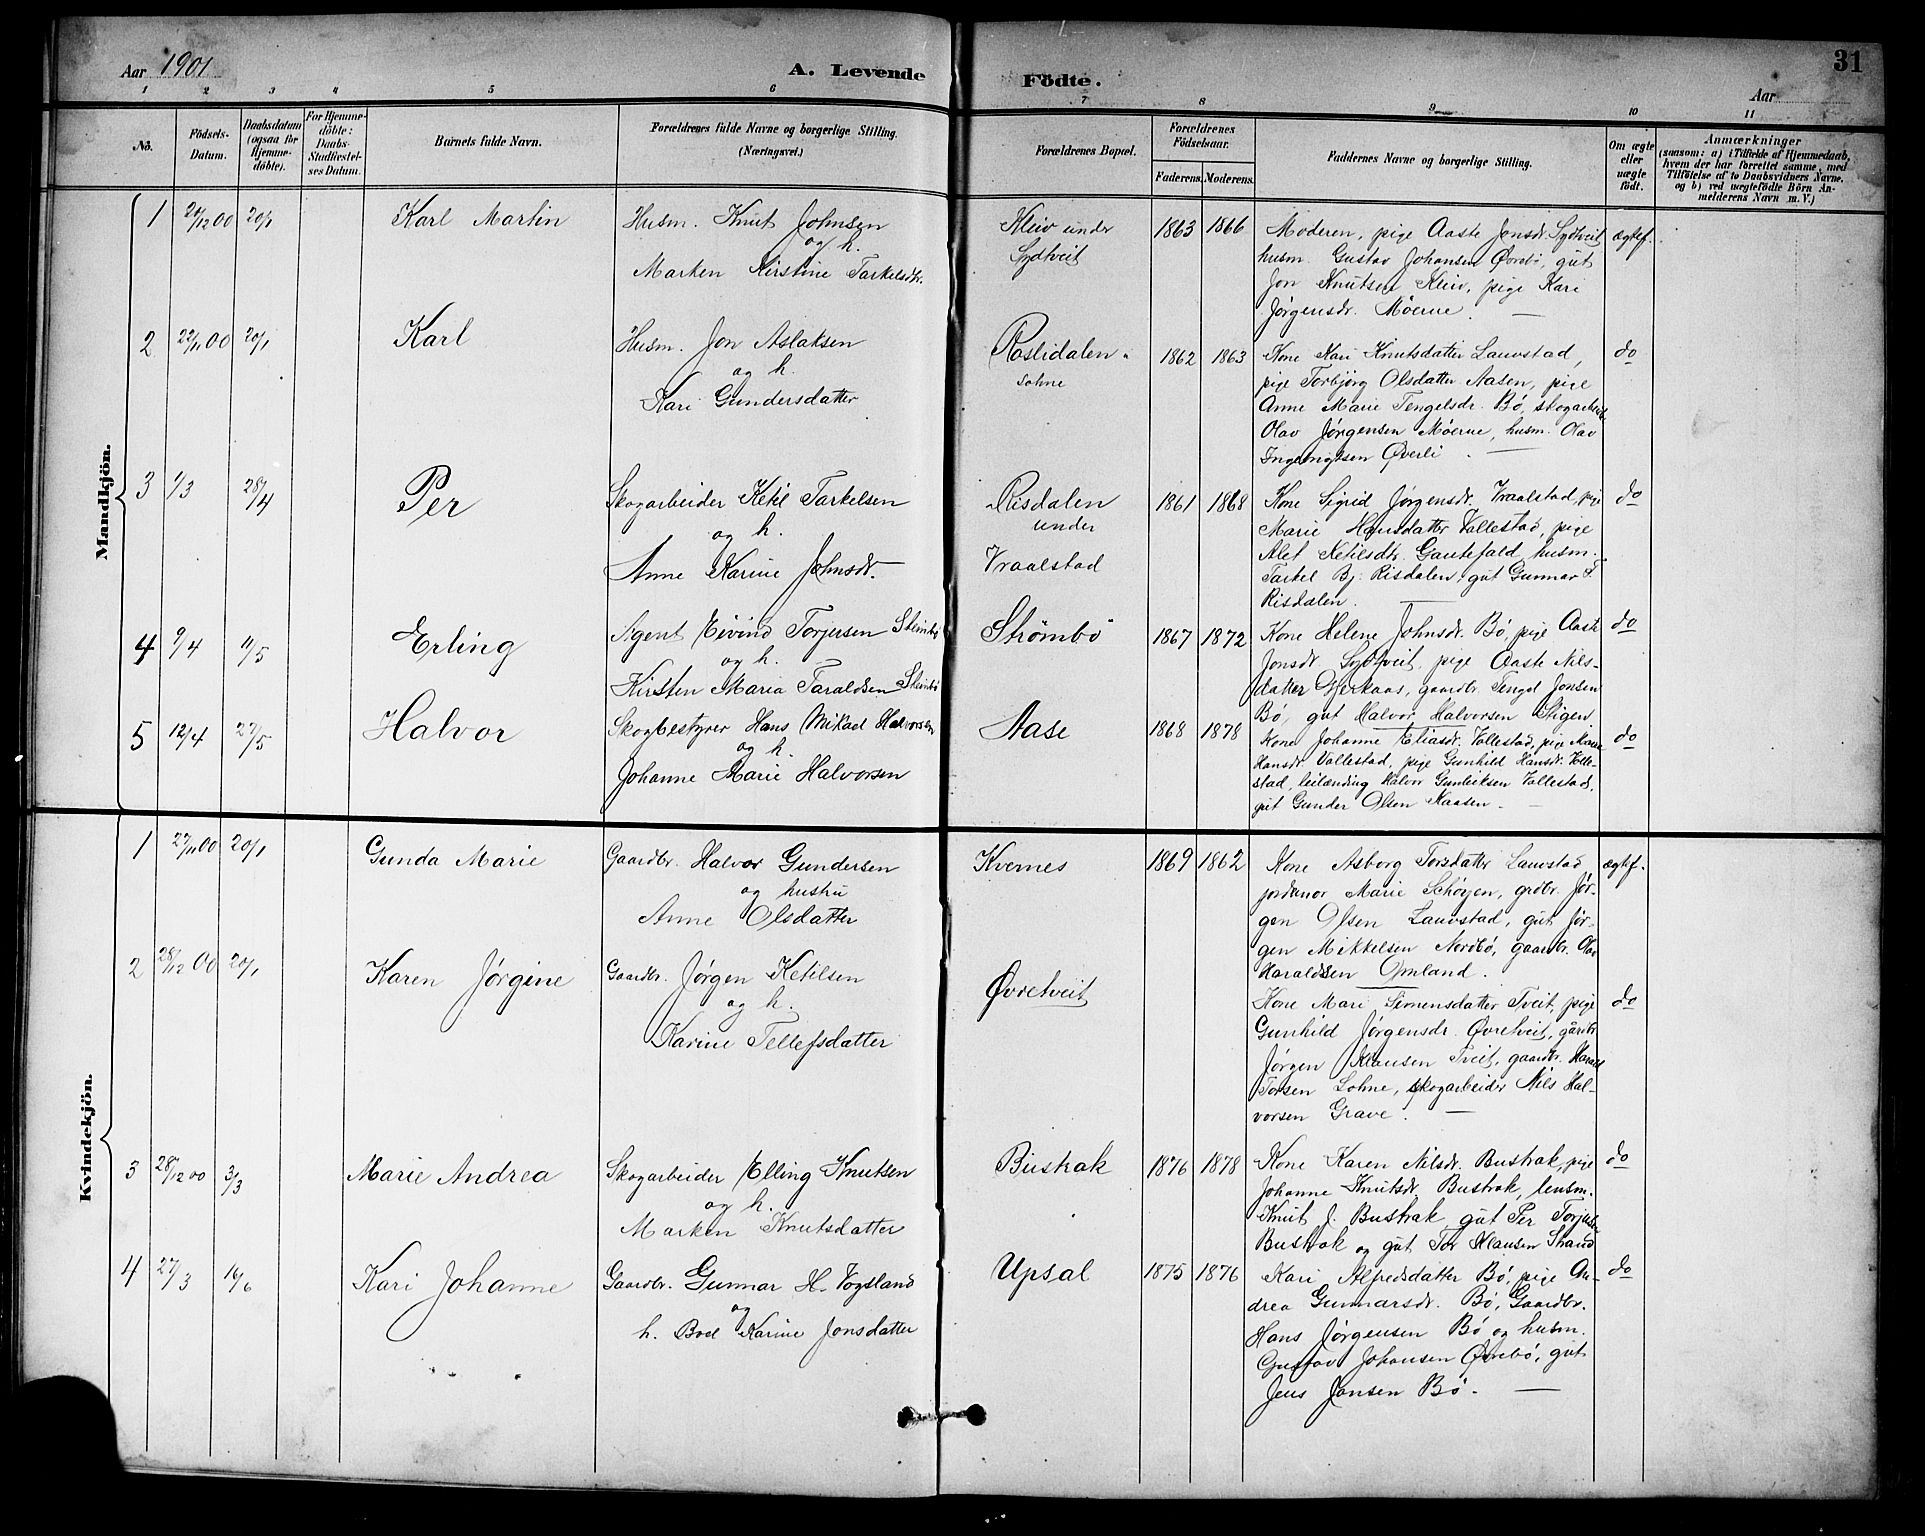 Aar 1901
A. Levende
Födte.
31
Aar
1 2 3 4 5 6 7 8 9 10 11
No.
Födsels-
Datum.
Daabsdatum
(ogsaa for
Hjemme-
döbte).
For Hjemme-
döbte:
Daabs-
Stadfæstel-
ses Datum.
Barnets fulde Navn.
Forældrenes fulde Navne og borgerlige Stilling.
(Næringsvei.)
Forældrenes Bopæl.
Forældrenes
Födselsaar.
Faderens. Moderens.
Faddernes Navne og borgerlige Stilling.
Om ægte
eller
uægte
födt.
Anmærkninger
(saasom: a) i Tilfælde af Hjemmedaab,
hvem der har forrettet samme, med
Tilföielse af to Daabsvidners Navne,
og b) ved uægtefödte Börn An-
melderens Navn m. V.)
Mandkjön.
1 20/12 00 20/1 Karl Martin
Husm. Knut Johnsen
og h.
Marken Kirstine Tarkelsdtr.
Kleiv under
Sydtveit
1863 1866
Moderen, pige Aaste Jonsdr. Sydtveit
husm. Gustav Johansen Øvrebø, gut
Jon Knutsen Kleiv, pige Kari
Jørgensdr. Møerne. —
ægtef.
2 22/11 00 20/1 Karl
Husm. Jon Aslaksen
og h.
Kari Gundersdatter
Roslidalen
Sohne
1862 1863
Kone Kari Knutsdatter Lauvstad,
pige Torbjörg Olsdatter Aasen, pige
Anne Marie Tengelsdr. Bø, skogarbeider
Olav Jørgensen Møerne, husm. Olav
Øverli. —
do
3 1/3 28/4 Per
Skogarbeider Ketil Tarkelsen
og h.
Anne Karine Johnsdr.
Risdalen
under
Vraalstad
1861 1868
Kone Sigrid Jørgensdr. Vraalstad, pige
Marie Hansdatter Vallestad, pige
Alet Ketilsdtr. Gautefald, husm.
Tarkel Bj. Risdalen, gut Gunnar T.
Risdalen. —
do
4 9/4 11/5 Erling
Agent Eivind Torjusen
og h.
Kirsten Maria Taraldsen
Strömbö
1867 1872
Kone Helene Johnsdr. Bø, pige Aaste
Jonsdr. Sydtveit, pige Aaste Nils-
datter, gaardbr. Tengel Jonsen
Bø, gut Halvor Halvorsen Stigen.
do
5 12/4 27/5 Halvor
Skogbestyrer Hans Mikael Halvorsen
og h.
Johanne Marie Halvorsen
Aase
1868 1878
Kone Johanne Eliasdr. Vallestad, pige Marie
Hansdr. Vallestad, pige Gunhild Hansdr. Valle-
stad, leilænding Halvor Gunleiksen Vallestad,
gut Gunder Olsen Kaasen. —
do
Kvindekjön.
1 27/11 00 20/1 Gunda Marie
Gaardbr. Halvor Gundersen
og hustru
Anne Olsdatter
Kvernes
1869 1862
Kone Asborg Torsdatter Lauvstad,
jordmor Marie Schöyen, grdbr. Jør-
gen Olsen Lauvstad, gut Jør-
gen Mikkelsen Nordbø, gaardbr. Olav
Haraldsen Omland.
ægtef.
2 28/12 00 20/1 Karen Jörgine
Gaardbr. Jørgen Ketilsen
og h.
Karine Tellefsdatter
Øvretveit
Kone Mari Simensdatter Tveit, pige
Gunhild Jørgensdr. Øvretveit, gårdbr.
Jørgen Klausen Tveit, gaardbr. Harald
Torsen Sohne, skogarbeider Nils Hal-
vorsen Grave. —
do
3 28/12 00 3/3 Marie Andrea
Skogarbeider Elling Knutsen
og h.
Marken Knutsdatter
Bustrak
1876 1878
Kone Karen Nilsdr. Bustrak, pige
Johanne Knutsdr. Bustrak, lensm.
Knut J. Bustrak, gut Per Torjusen
Bustrak og gut Tor Klausen Strand
do
4 27/3 16/6 Kari Johanne
Gaardbr. Gunnar H. Vogsland
og
h. Boel Karine Jonsdatter
Upsal
1875 1876
Kari Alfredsdatter Bø, pige An-
drea Gunnarsdr. Bø, Gaardbr.
Hans Jørgensen Bø og husm.
Gustav Johansen Øvrebø, gut
Jens Jansen Bø. —
do